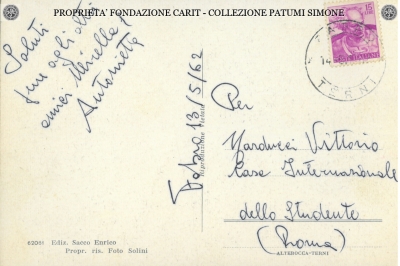 PROPRIETA' FONDAZIONE CARIT - COLLEZIONE PATUMI SIMONE
Saluti
agli
amici Mirella
Antonietta
Fabro 13/5/62
Riproduzione Vietata
15
POSTE ITALIANE
14
TERNI
Per
Narducci Vittorio
Casa Internazionale
dello Studente
(Roma)
62091 Ediz. Sacco Enrico
Propr. ris. Foto Solini
ALTEROCCA-TERNI